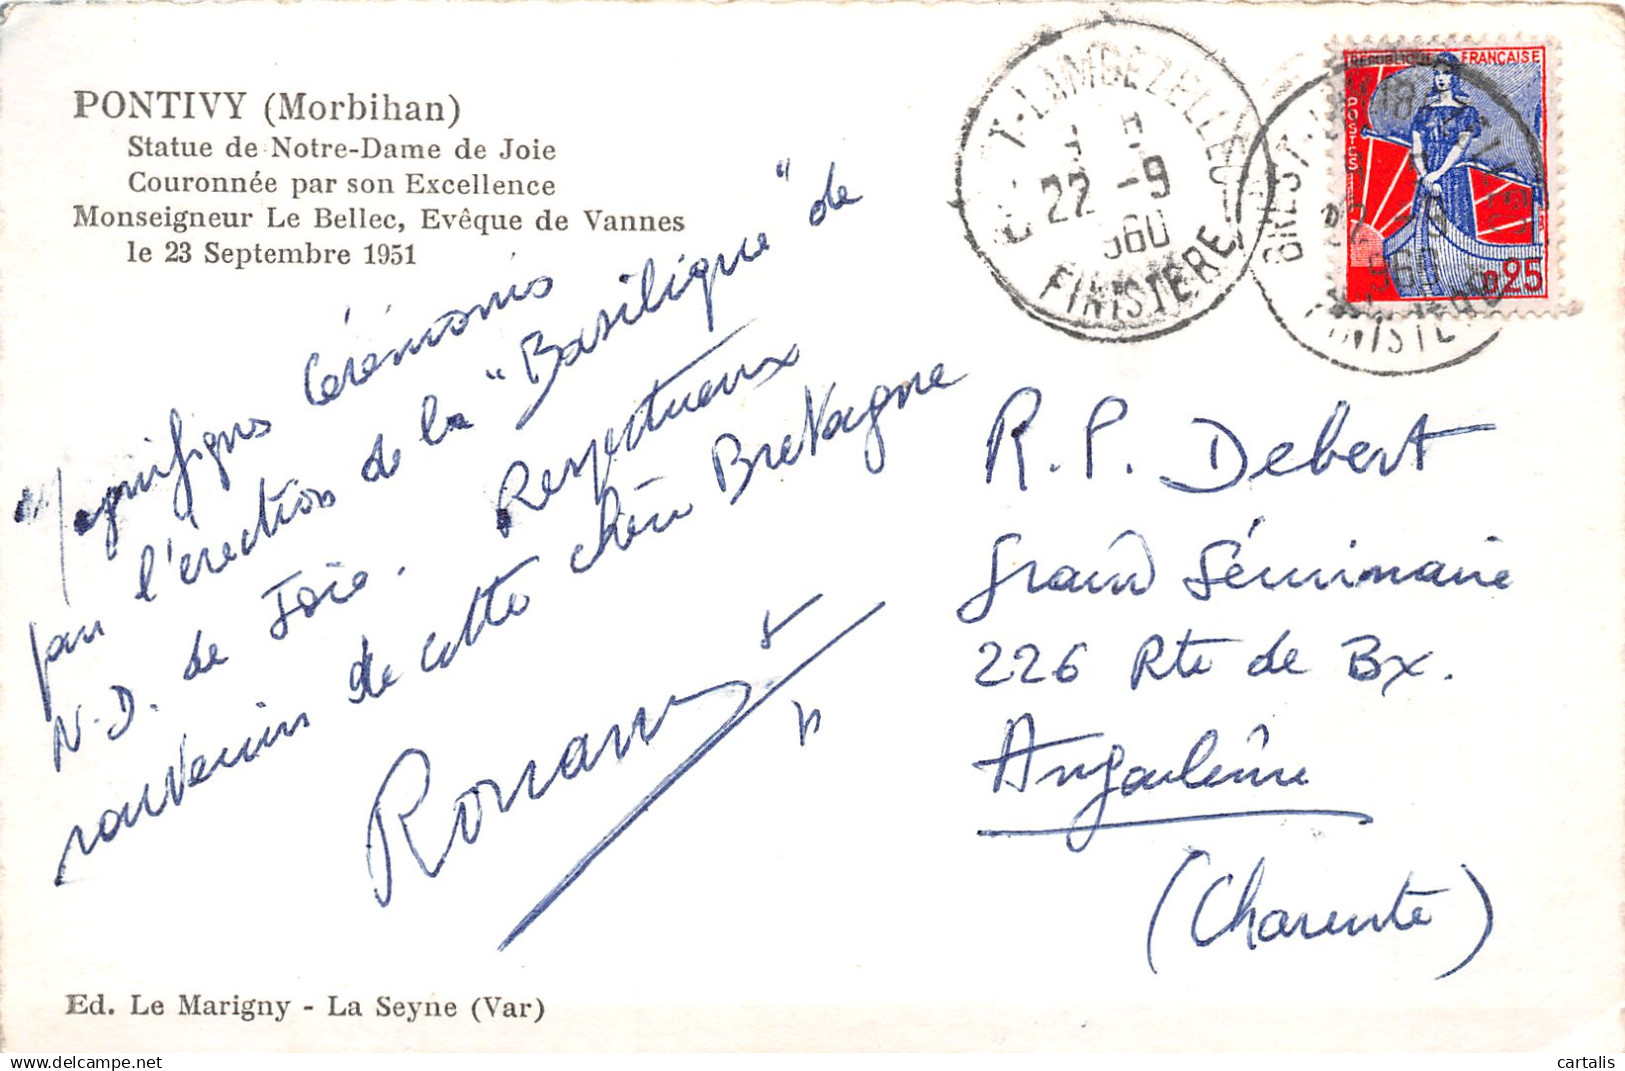 PONTIVY (Morbihan)
Statue de Notre-Dame de Joie
Couronnée par son Excellence
Monseigneur Le Bellec, Evêque de Vannes
le 23 Septembre 1951
Magnifiques Cérémonies
pour l'érection de la "Basilique" de
N.D. de Joie. Respectueux
souvenirs de cette chère Bretagne
Ed. Le Marigny - La Seyne (Var)
22 -9
960
FINISTERE
REPUBLIQUE FRANÇAISE
POSTES
0,25
BREST
FINISTERE
R. P. Debert
Grand Séminaire
226 Rte de Bx.
Angoulême
(Charente)
cartalis